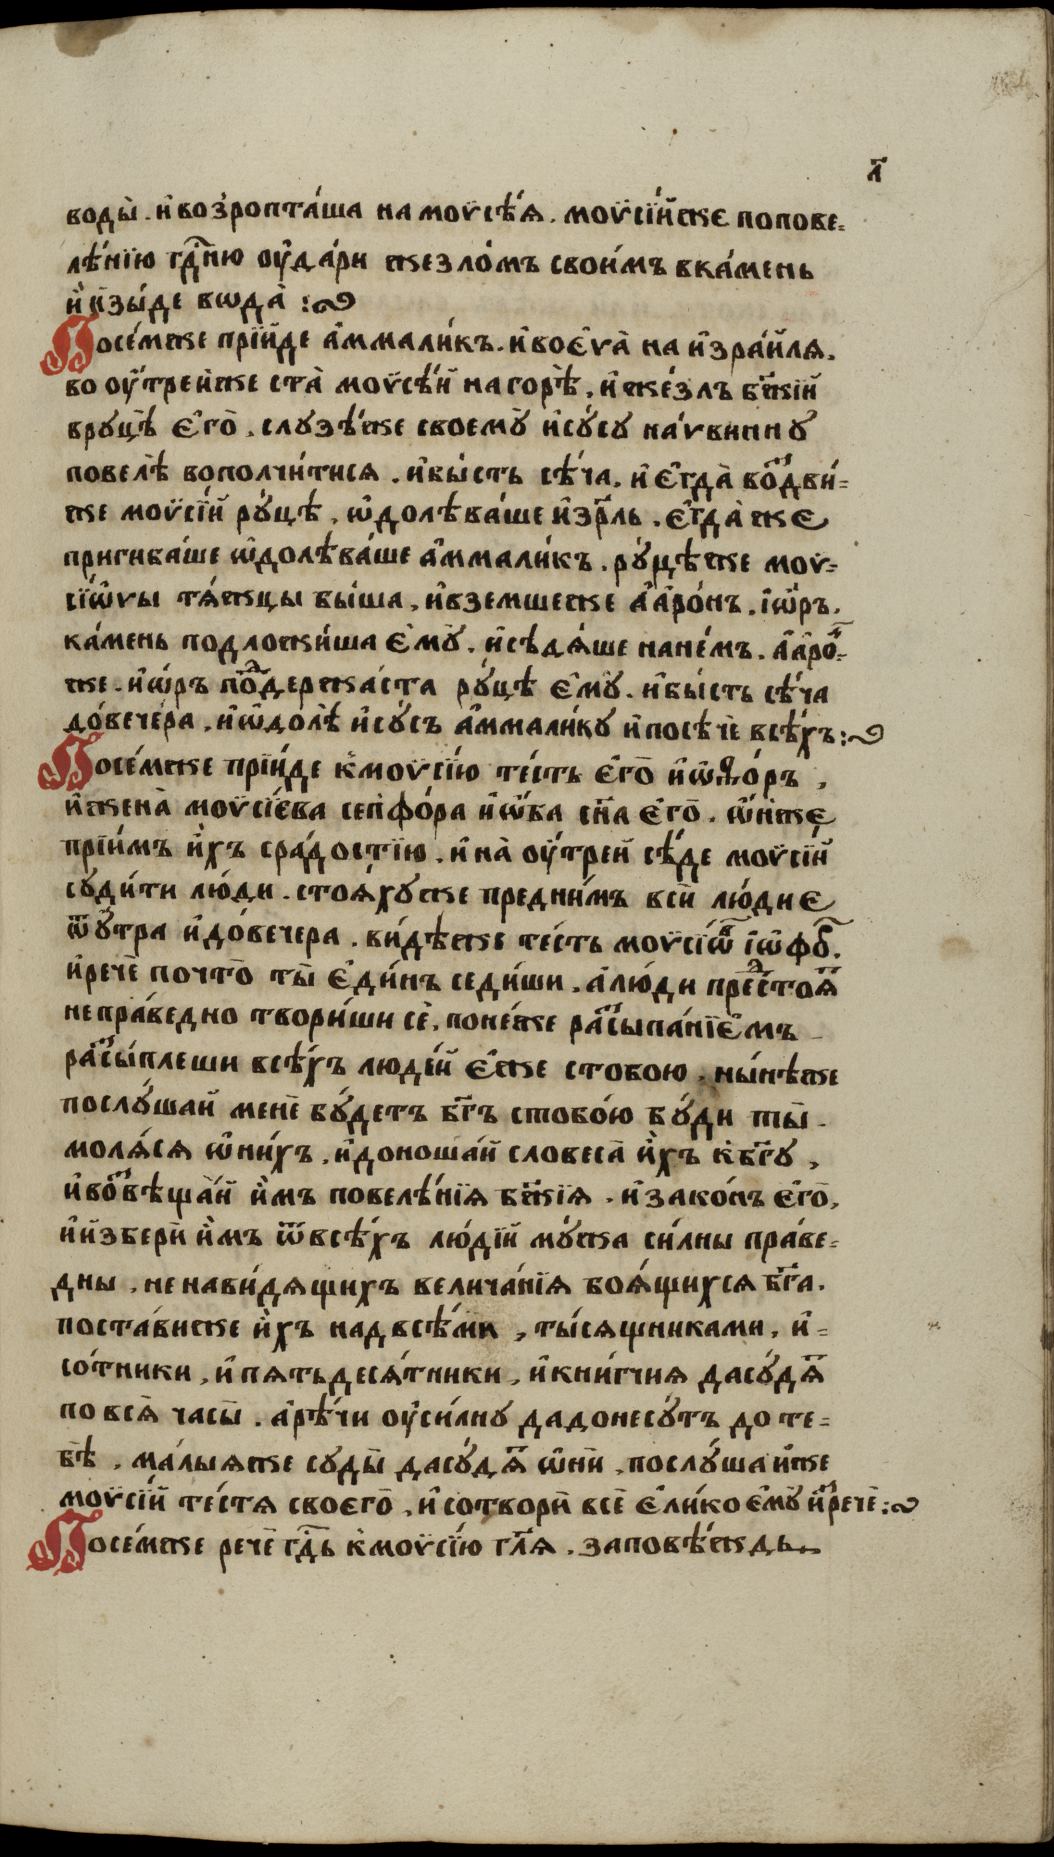 л҃
воды̀ . и҆возропта́ша на моѷсе́ѧ . моѷсі́йже попове-
лѣ́нїю гдⷭ҇ню ᲂу҆да́ри жезло́мъ свои́мъ вка́мень
и҆и҆зы́де вѡда̀ :~
Посе́мже прїи́де а҆ммали́къ . и҆воєва̀ на и҆зра́илѧ .
во ᲂу҆́трейже ста̀ моѷсе́й на горѣ̀ , и҆ же́злъ бж҃їй
вруцѣ̀ є҆гѡ̀ . слузѣ́же своемꙋ̀ и҆сꙋ́сꙋ на́ввинꙋ
повелѣ̀ вополчи́тисѧ . и҆бы́сть сѣ́ча . и҆ є҆гда̀ воⷥдви́-
же моѷсі́й рꙋ́цѣ , ѡ҆долѣва́ше и҆зр҃ль . є҆гда́ же
пригиба́ше ѡ҆долѣва́ше а҆ммали́къ . рꙋ́цѣже моѷ-
сіѡ́вы тѧ́жцы бы́ша , и҆вземшеже а҆арѡ́нъ . і҆ѡ́ръ .
ка́мень подложи́ша є҆мꙋ̀ . и҆сѣдѧ́ше нане́мъ . а҆аро́ⷩ-
же . и҆ѡ́ръ поⷣдержа́ста рꙋ́цѣ є҆мꙋ̀ . и҆бы́сть сѣ́ча
до́вечера , и҆ѡ҆долѣ̀ и҆сꙋ́съ а҆ммали́кꙋ и҆посѣчѐ всѣ́хъ :~
Посе́мже прїи́де кмоѷсі́ю те́сть є҆гѡ̀ и҆ѡѳо́ръ ,
и҆жена̀ моѷсі́ева сепфо́ра и҆ѡ́ба сн҃а є҆гѡ̀ . ѡ҆́нже
прїи́мъ и҆̀хъ сра́достїю . и҆ на̀ ᲂу҆́трей сѣ́де моѷсі́й
сꙋди́ти лю́ди . стоѧ́хꙋже предни́мъ всѝ лю́дие
ѿꙋ́тра и҆до́вечера . ви́дѣже те́сть моѷсіѡ́ⷡ і҆ѡфо́ⷬ .
и҆речѐ почто̀ ты̀ є҆ди́нъ седи́ши . а҆лю́ди преⷣстоѧ́ⷮ
непра́ведно твори́ши сѐ , поне́же раⷭ҇сыпа́нїемъ
раⷭ҇сы́плеши всѣ́хъ люде́й є҆́же стобою . ны́нѣже
послꙋ́шай менѐ бꙋ́детъ бг҃ъ стобо́ю бꙋ́ди ты̀
молѧ́сѧ ѡ҆ни́хъ . и҆доноша́й словеса̀ и҆̀хъ кбг҃ꙋ ,
и҆воⷥвѣща́й и҆̀мъ повелѣ́нїѧ бж҃їѧ . и҆зако́нъ є҆гѡ̀ ,
и҆и҆збери̑ и҆̀мъ ѿвсѣ́хъ лю́дїй мꙋ́жа си́лны пра́ве-
дны . ненави́дѧщихъ велича́нїѧ боѧ́щихсѧ бг҃а .
поста́виже и҆̀хъ надвсѣ́ми , ты́сѧщниками , и҆-
со́тники , и҆пѧтьдесѧ́тники , и҆кни́гчиѧ дасꙋ́дѧⷮ
по всѧ̀ часы̀ . а҆рѣ́чи ᲂу҆си́лнꙋ дадонесꙋ́тъ до те-
бѣ̀ , ма́лыѧже сꙋды̀ дасꙋ́дѧⷮ ѡ҆нѝ , послꙋ́ша́йже
моѷсі́й те́стѧ своегѡ̀ , и҆сотворѝ всѐ є҆ли́ко є҆мꙋ̀ и҆ⷥречѐ :~
Посе́мже речѐ гдⷭ҇ь кмоѷсі́ю гл҃ѧ . заповѣ́ждь